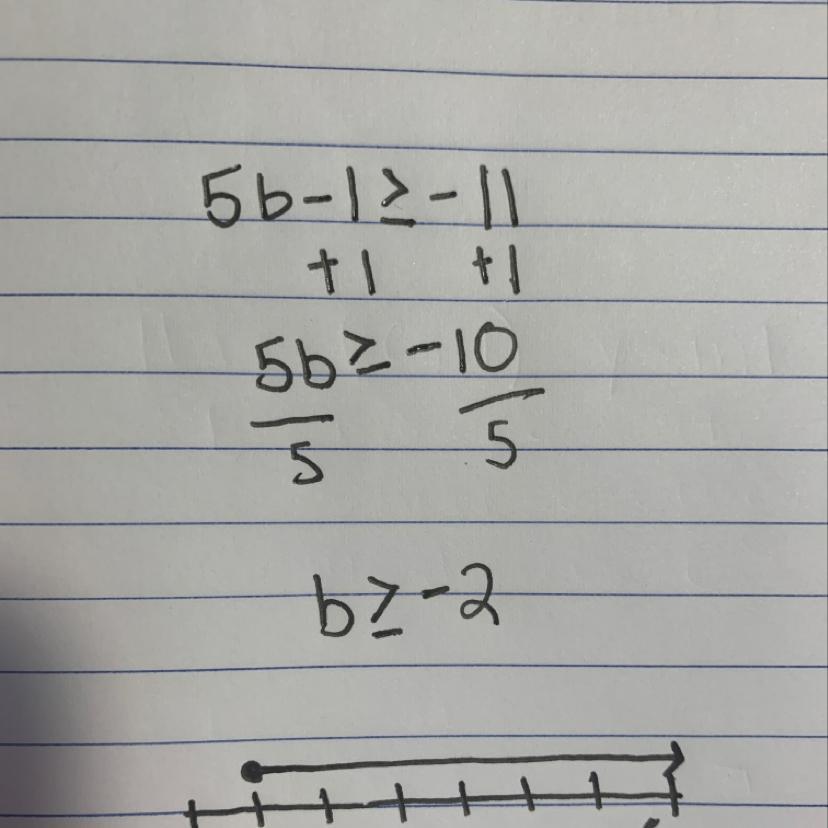 5b-1≥-11
+1 +1
5b≥-10
5 5
b≥-2